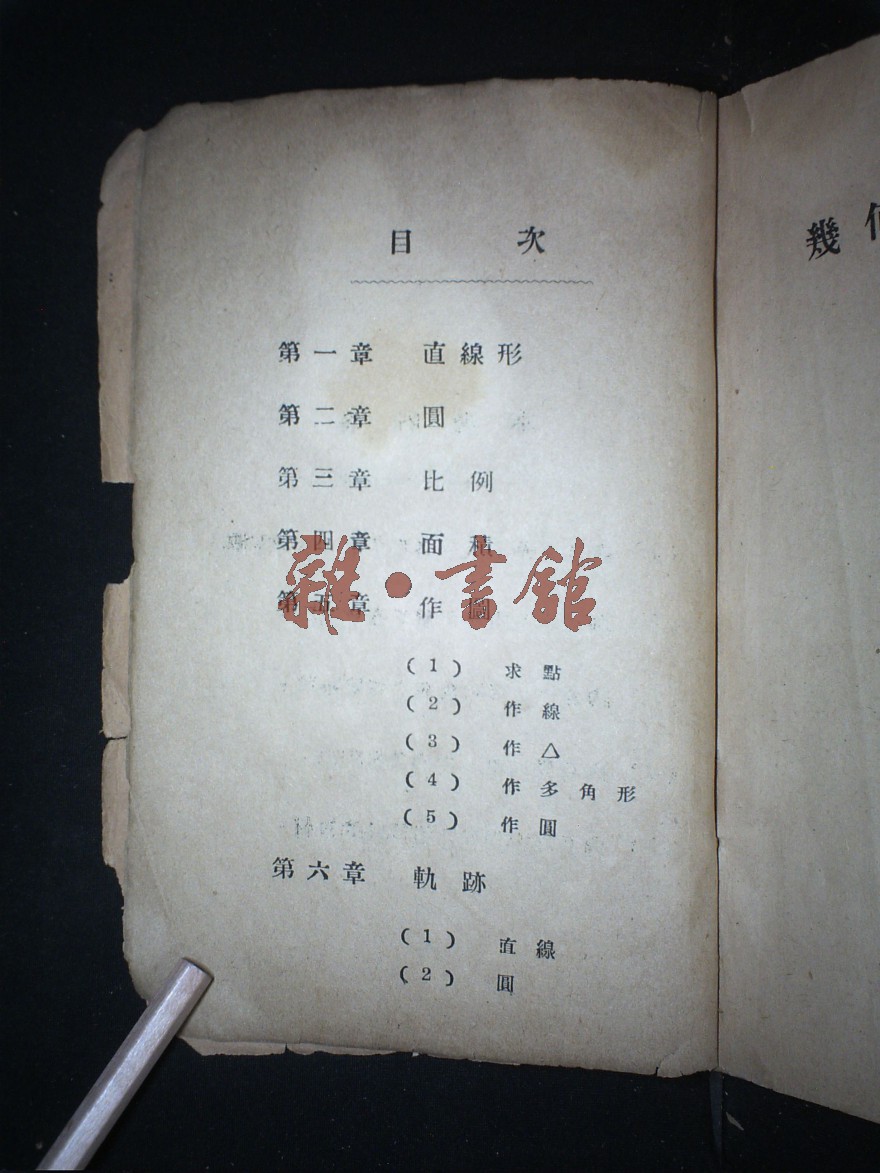 目次
第一章 直線形
第二章 圓
第三章 比例
第四章 面積
第五章 作圖
(1) 求點
(2) 作線
(3) 作△
(4) 作多角形
(5) 作圓
第六章 軌跡
(1) 直線
(2) 圓
雜·書館
幾